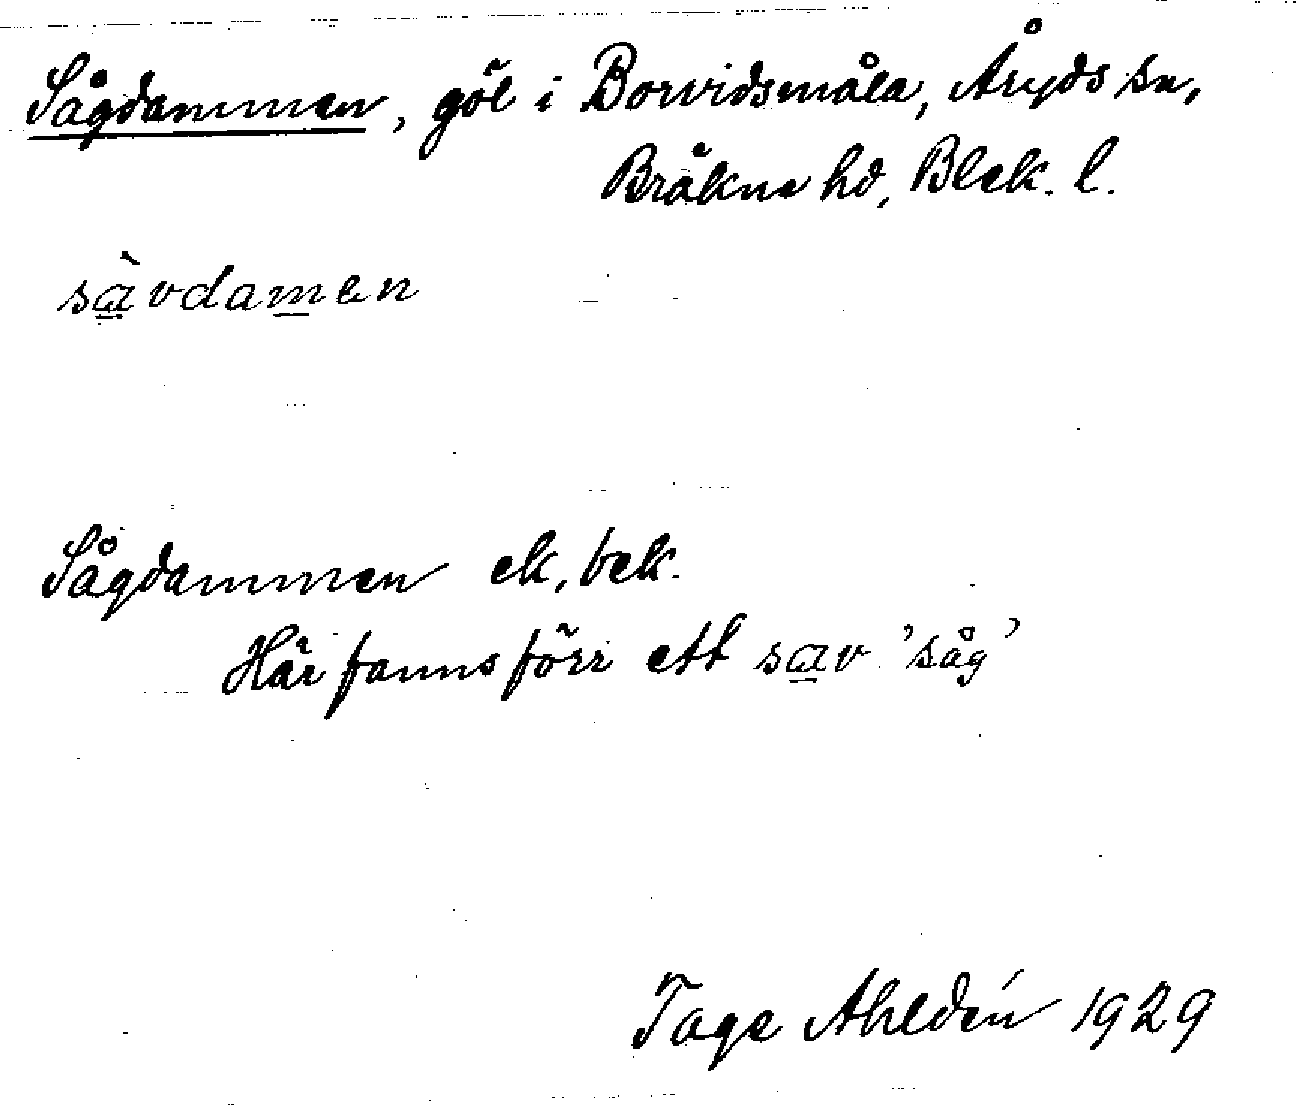 Sågdammen, göl i Borvidsmåla, Åryds sn,
Bräkne hd, Blek. l.
sàvdamen
Sågdammen ek, bek.
Här fanns förr ett sav 'såg'
Tage Ahldén 1929